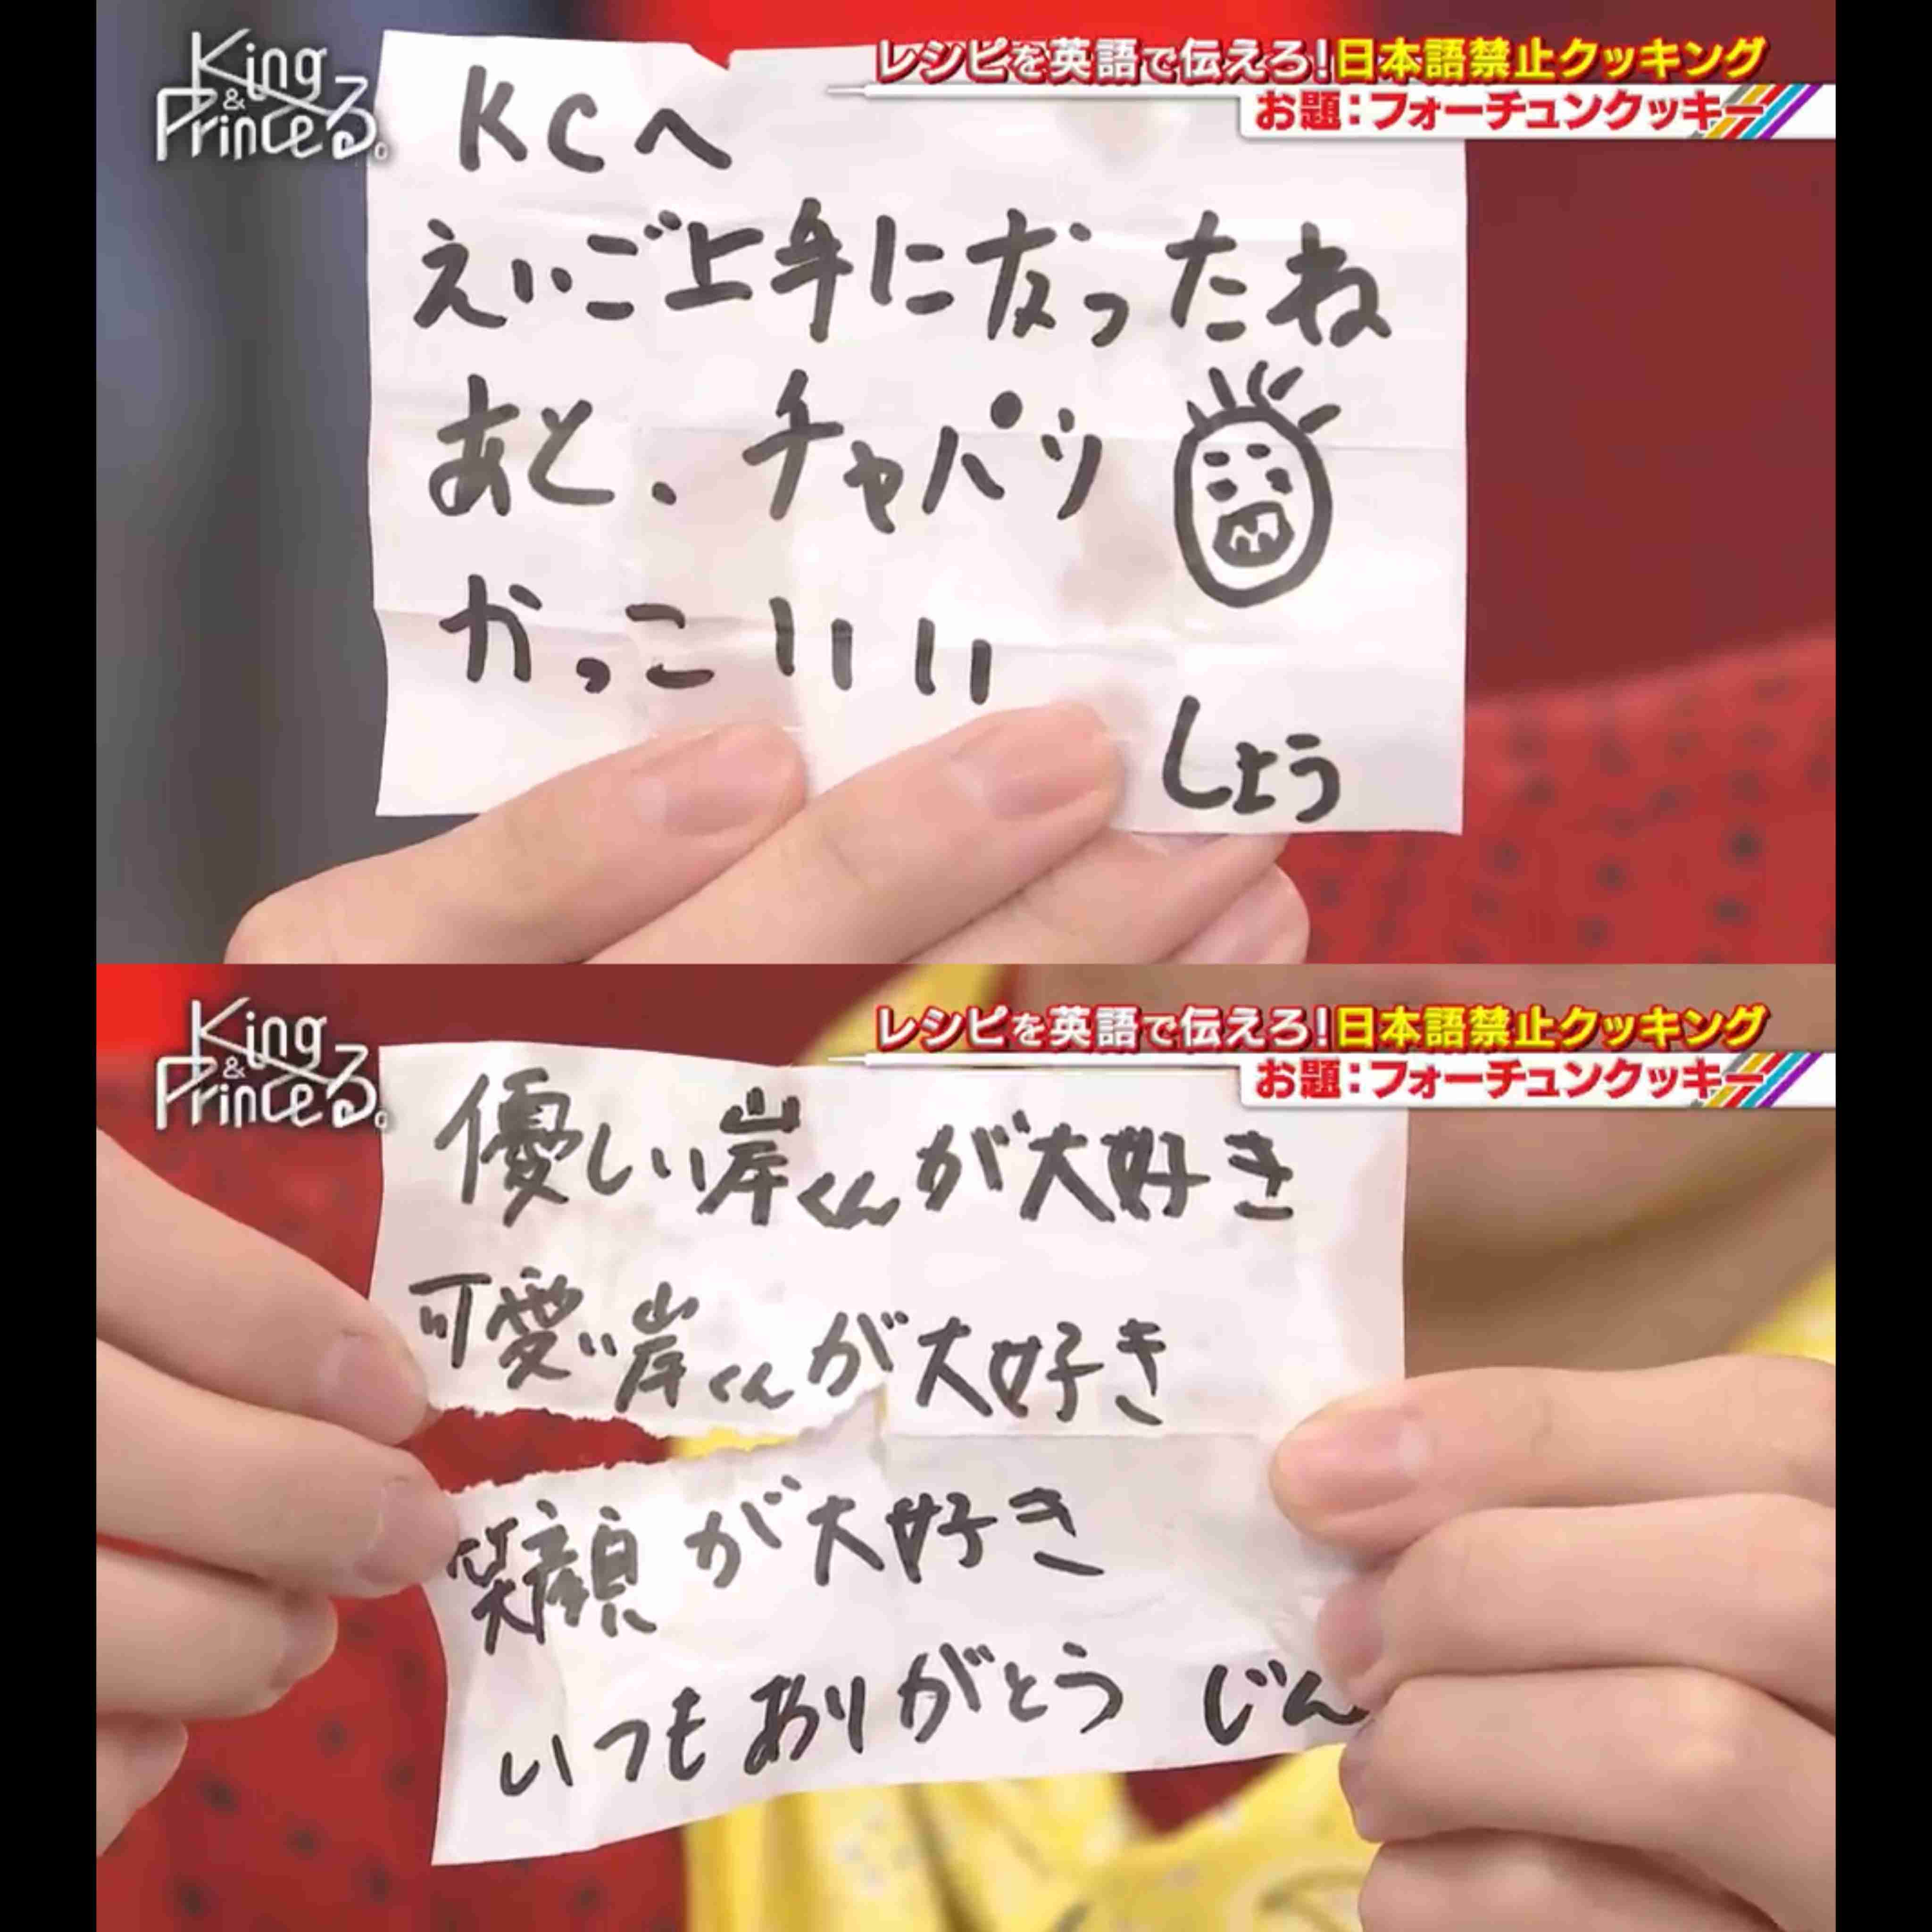 King & Princeる。
レシピを英語で伝えろ!日本語禁止クッキング
お題:フォーチュンクッキー
KCへ
えいご上手になったね
あと、チャパツ
かっこいいい
しょう
King & Princeる。
レシピを英語で伝えろ!日本語禁止クッキング
お題:フォーチュンクッキー
優しい岸くんが大好き
可愛い岸くんが大好き
笑顔が大好き
いつもありがとう じん